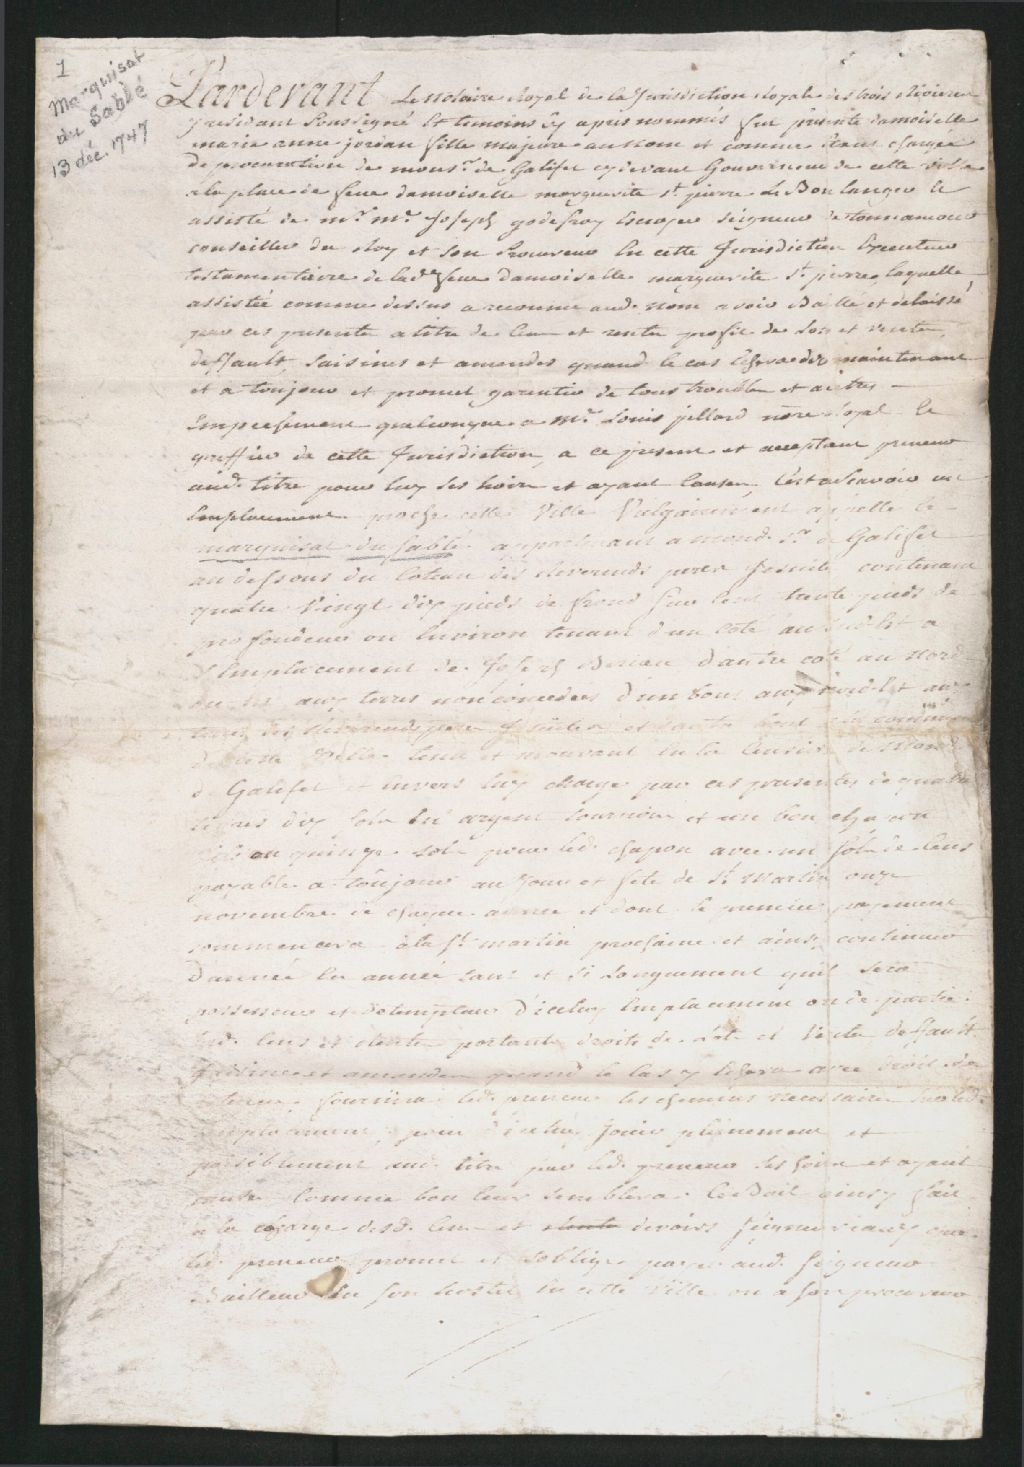 1
Marquisat
du Sablé
13 déc. 1747
Pardevant Le notaire Royal de la Jurisdiction Royale des trois Rivieres
y residant soussigné et temoins cy apres nommés fut presente damoiselle
marie anne fille majeure au nom et comme chargée
De procuration de monsr. de Galifet cydevant Gouverneur de cette ville
a la place de feue damoiselle marguerite st. pierre Le Boulanger et
assisté de mr. mr. Joseph godefroy Ecuyer seigneur de tonnancour
conseiller du Roy et son Procureur En cette Jurisdiction Executeur
testamentaire de lade. feue damoiselle marguerite st. pierre, laquelle
assistée comme dessus a reconnu aud. nom avoir Baillé et delaissé
par ces presente a titre de Cens et rente profit de lots et vente
deffault, saisines et amendes quand le cas maintenant
et a toujour et promet garentir de tous troubles et autres
Empeschement quelconque a mr. Louis pillard notre. Royal Et
greffier de cette Jurisdiction, a ce present et acceptant preneur
aud. titre pour luy ses hoirs et ayant Causes, C'est ascavoir un
Emplacement proche cette Ville Vulgairement appellé le
marquisat du sablé appartenant a mond. sr. de Galifet
au dessous du Coteau des Reverends peres Jesuite contenant
quatre Vingt dix pieds de frond sur Cent trente pieds de
profondeur ou Environ tenant d'un coté au sud-Est a
l'Emplacement de Joseph d'autre coté au Nord
aux terres non concedées d'un bout aux
terres des Reverends peres Jesuites et d'autre bout
De cette Ville tenu et mouvant En la Censive de Mond.
de Galifet et Envers luy chargé par ces presentes de quatre
livres dix sols En argent tournois et un bon chapon
vif ou quinze sols pour led. chapon avec un sols de Cens
payable a toujour au jour et fete de st. Martin onze
novembre de chaque année et dont le premier payement
commencera a la st. martin prochaine et ainsy continuer
D'année En année tant et si Longuement qu'il sera
possesseur et detempteur d'iceluy Emplacement ou de partie
Cens et Rente portant droits de Lots et Vente deffault
saisine et amende quand le cas y Echera avec droit de
retenue, fournira led. preneur les chemins necessaire sur led.
Emplacement, pour d'icelui Jouir plainement et
paisiblement aud. titre par led. preneur ses hoirs et ayant
cause Comme bon leur semblera. Ce Bail ainsy fait
a la charge desd. Cens et Rente devoirs Seigneuriaux que
led. preneur promet et s'oblige payer aud. Seigneur
Bailleur En son hostel En cette Ville ou a son procureur